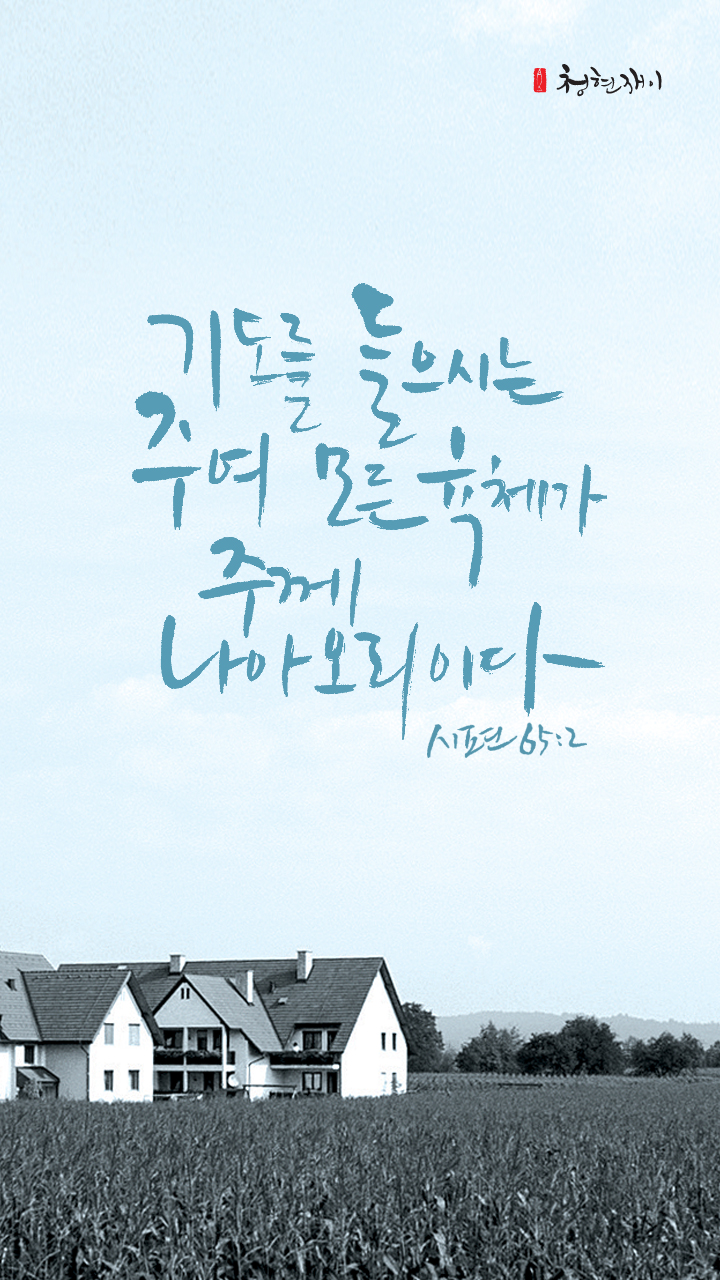 청현재이
기도를 들으시는
주여 모든 육체가
주께
나아오리이다
시편 65:2